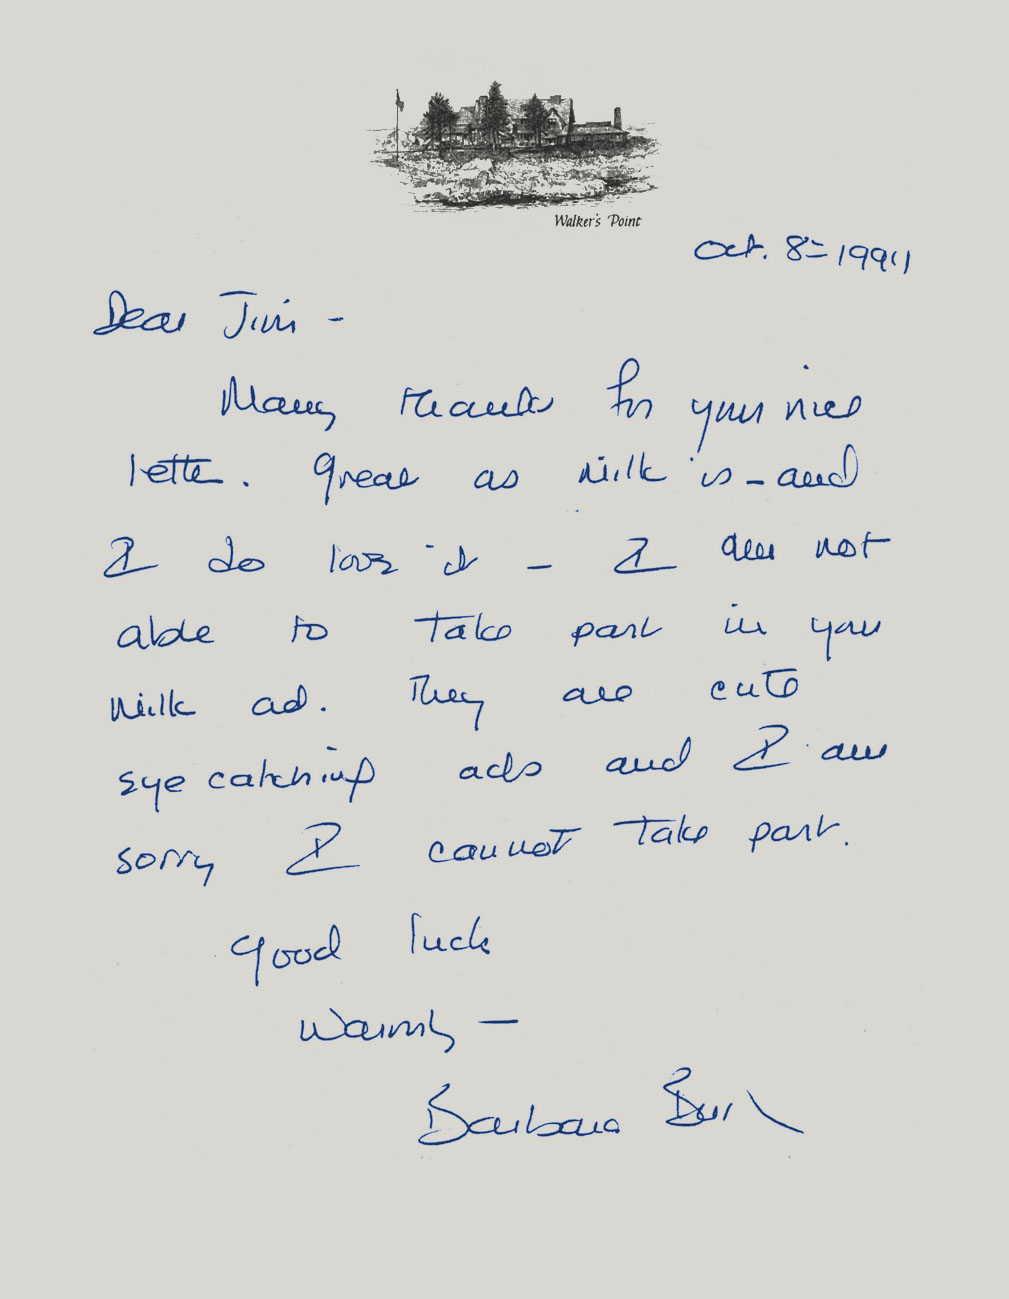 Walker's Point
Oct. 8 = 1994
Dear Jim -
Many thanks for your nice
letter. Great as milk is - and
I do love it - I am not
able to take part in your
milk ad. They are cute
eye catching ads and I am
sorry I cannot take part.
Good luck
Warmly —
Barbara Bush